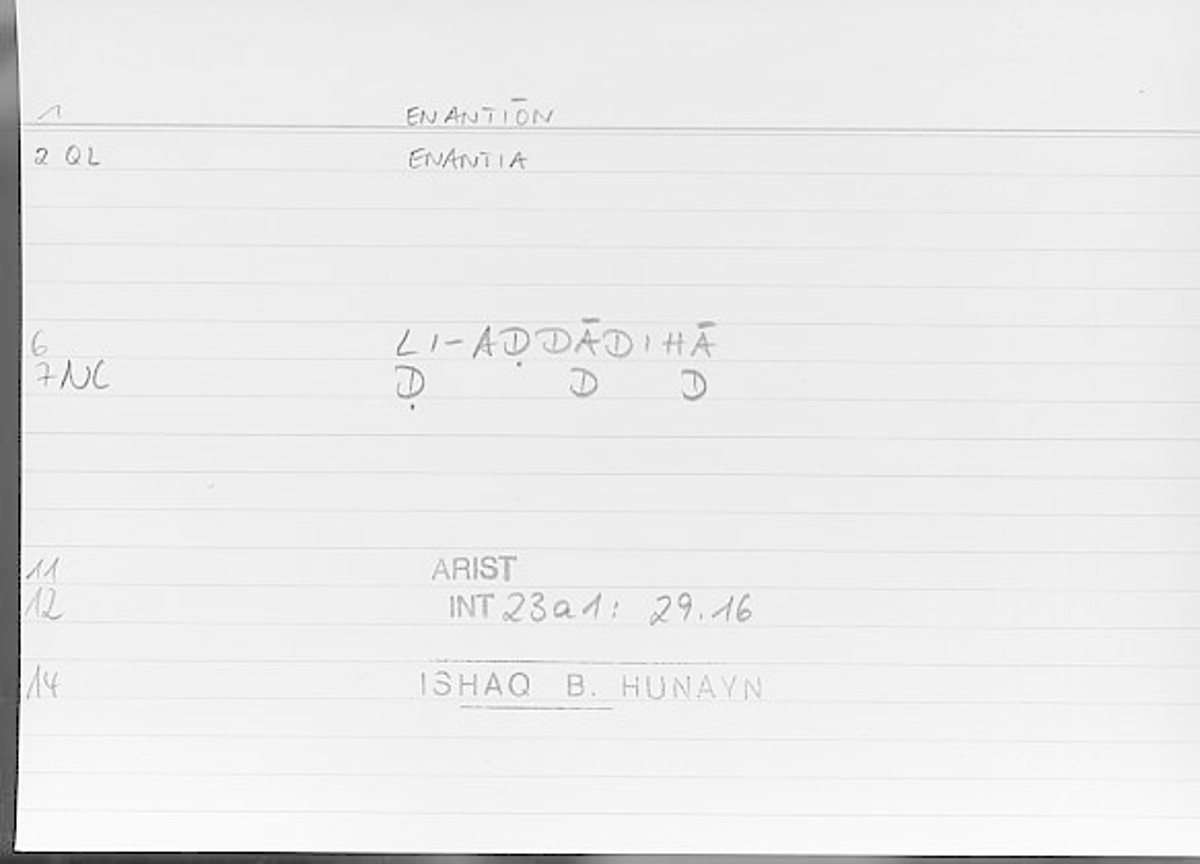 1 ENANTIŌN
2 QL ENANTIA
6 LI-AḌDĀDIHĀ
7 NC Ḍ D D
11 ARIST
12 INT 23a1: 29.16
14 ISHAQ B. HUNAYN